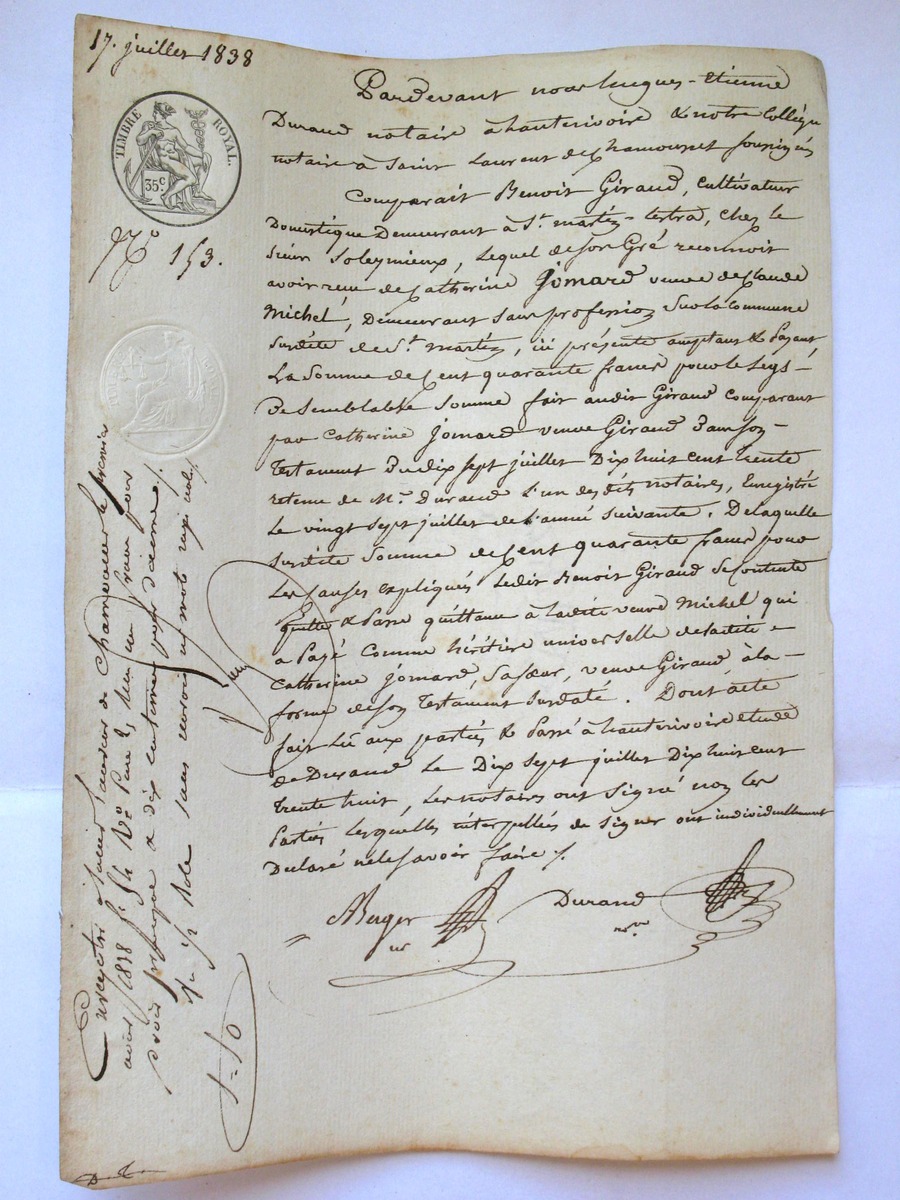 17. juillet 1838
TIMBRE ROYAL.
35 c
N.o 153.
Pardevant nous hugues-Etienne
Durand notaire à hauterivoire & notre Collègue
notaire à Saint Laurent de chamousset soussignés
Comparait Benoit Giraud, cultivateur
Domestique Demeurant à St. martin-lestra, chez le
Sieur Soleymieux, Lequel de son Gré reconnoit
avoir reçu de Catherine Jomard veuve de claude
Michel, Demeurant sans profession sur la commune
Susdite de St. martin, ici présente comptant & Payant
La Somme de Cent quarante francs pour le Legs
De semblable Somme fait audit Giraud Comparant
par Catherine Jomard veuve Giraud Dans son
Testament Du dix sept juillet Dix huit cent trente
retenu de Me. Durand L'un desdits notaires, Enregistré
Le vingt sept juillet de L'année suivante. De laquelle
Susdite Somme de Cent quarante francs pour
Les Causes expliquées Ledit Benoit Giraud se contente
quitte & Passe quittance à Ladite veuve Michel qui
a Payé Comme héritière universelle de ladite
Catherine Jomard, Sa Sœur, veuve Giraud, à la
forme de son Testament Susdaté. Dont acte
fait Lu aux parties & Passé à hauterivoire étude
de Durand Le Dix Sept juillet Dix huit cent
Trente huit, Les notaires ont Signé non les
Parties Lesquelles interpellées de signer ont individuellement
Declaré ne le savoir faire /.
Durand
Enregistré à Saint Laurent de Chamousset le premier
août 1838 f.
sur
mots
1=50